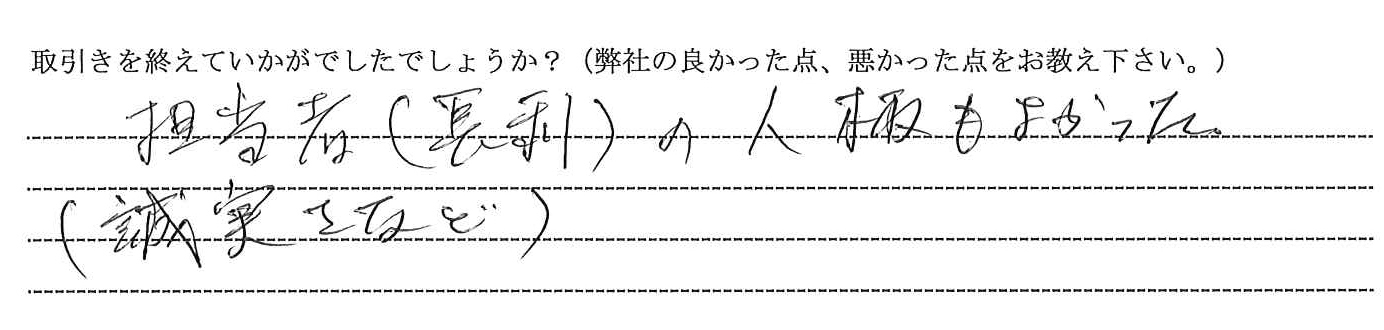 取引きを終えていかがでしたでしょうか？（弊社の良かった点、悪かった点をお教え下さい。）
担当者（長利）の人柄もよかった。
（誠実さなど）